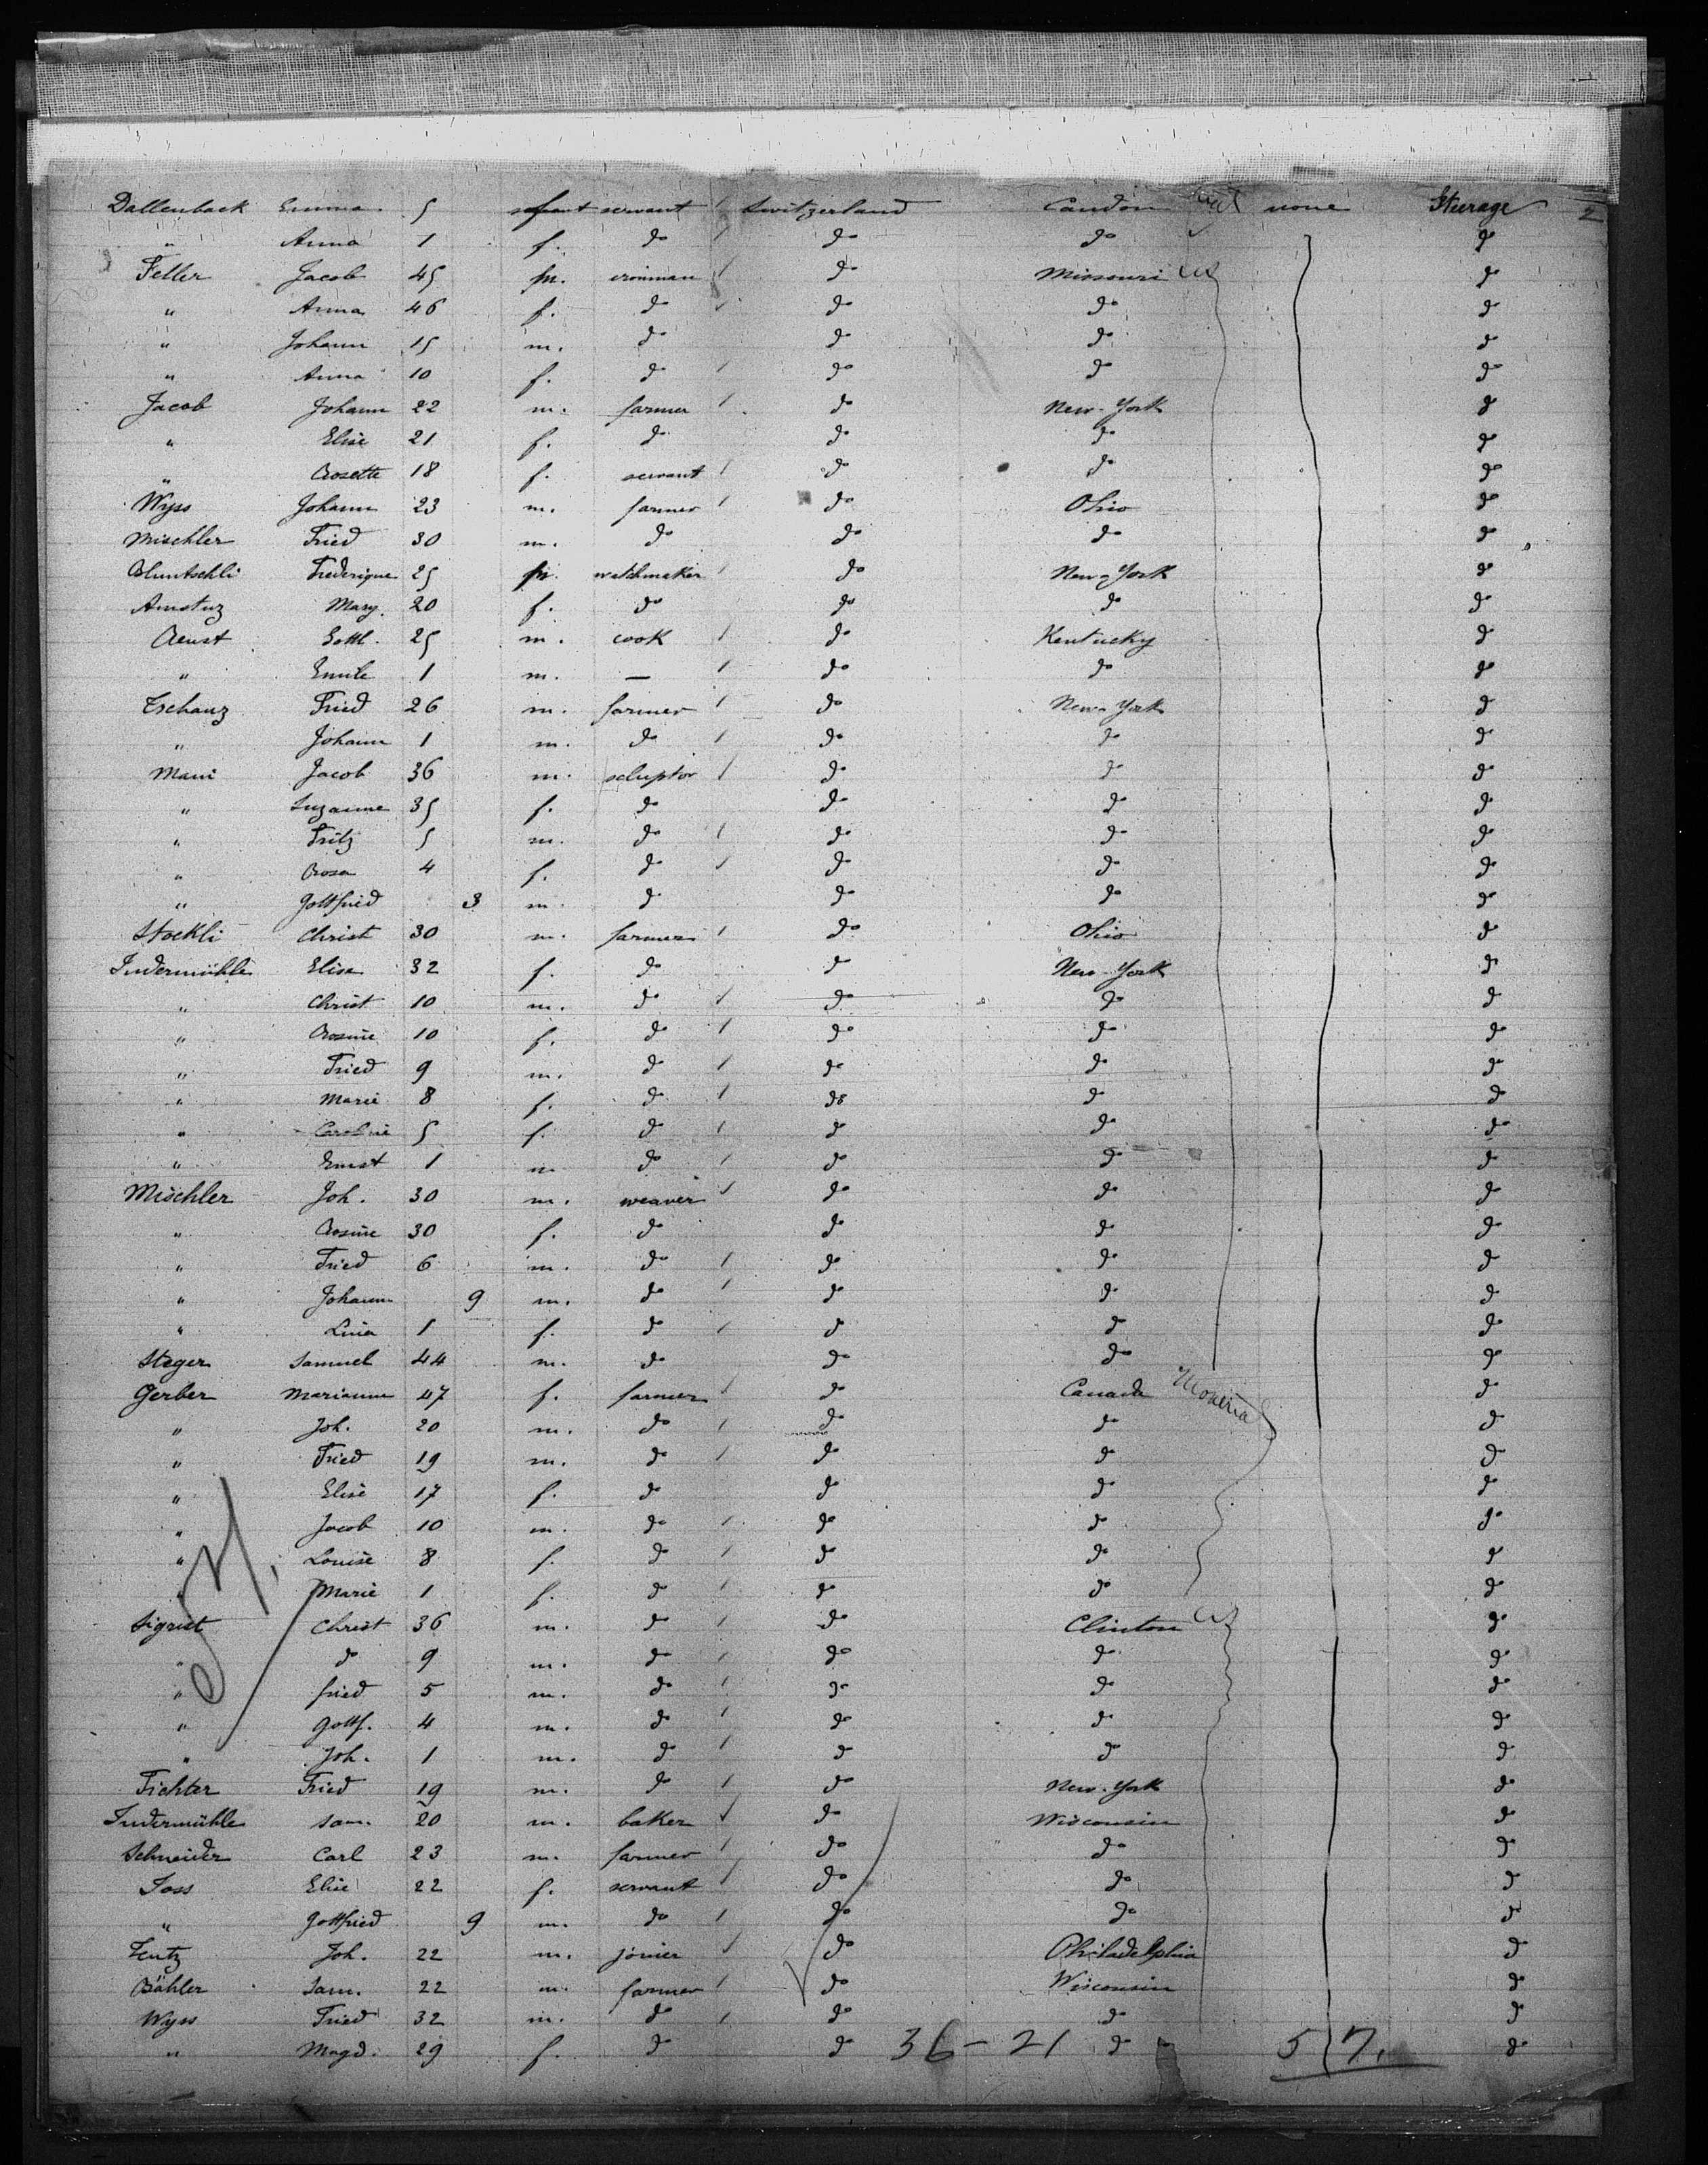 Dallenback Emma 5 servant Switzerland Canton none Steerage 2
" Anna 1 f. do do do do
Feller Jacob 45 m. ironman do Missouri do
" Anna 46 f. do do do do
" Johann 15 m. do do do do
" Anna 10 f. do do do do
Jacob Johann 22 m. farmer do New-York do
" Elise 21 f. do do do do
" Rosette 18 f. servant do do do
Wyss Johann 23 m. farmer do Ohio do
Mischler Fried 30 m. do do do do
Bluntschli Frederique 25 watchmaker do New-York do
Amstuz Mary. 20 f. do do do do
Aenst Gottl. 25 m. cook do Kentucky do
" Emile 1 m. — do do do
Tschanz Fried 26 m. farmer do New-York do
" Johann 1 m. do do do do
Mani Jacob 36 m. scluptor do do do
" Suzanne 35 f. do do do do
" Fritz 5 m. do do do do
" Rosa 4 f. do do do do
" Gottfried 3 m. do do do do
Stockli Christ 30 m. farmer do Ohio do
Indermühle Elise 32 f. do do New-York do
" Christ 10 m. do do do do
" Rosine 10 f. do do do do
" Fried 9 m. do do do do
" Marie 8 f. do do do do
" Caroline 5 f. do do do do
" Ernst 1 m do do do do
Mischler Joh. 30 m. weaver do do do
" Rosine 30 f. do do do do
" Fried 6 m. do do do do
" Johann 9 m. do do do do
" Lina 1 f. do do do do
Steger Samuel 44 m. do do do do
Gerber Marianne 47 f. farmer do Canada do
" Joh. 20 m. do do do do
" Fried 19 m. do do do do
" Elise 17 f. do do do do
" Jacob 10 m. do do do do
" Louise 8 f. do do do do
" Marie 1 f. do do do do
Sigrist Christ 36 m. do do Clinton do
" do 9 m. do do do do
" fried 5 m. do do do do
" Gottf. 4 m. do do do do
" Joh. 1 m. do do do do
Fichter Fried 19 m. do do New-York do
Indermühle Sam. 20 m. baker do Wisconsin do
Schneider Carl 23 m. farmer do do do
Joss Elise 22 f. servant do do do
" Gottfried 9 m. do do do do
Zentz Joh. 22 m. joiner do Philadelphia do
Bähler Sam. 22 m. farmer do Wisconsin do
Wyss Fried 32 m. do do do do
" Magd. 29 f. do do do do
36 - 21 57.